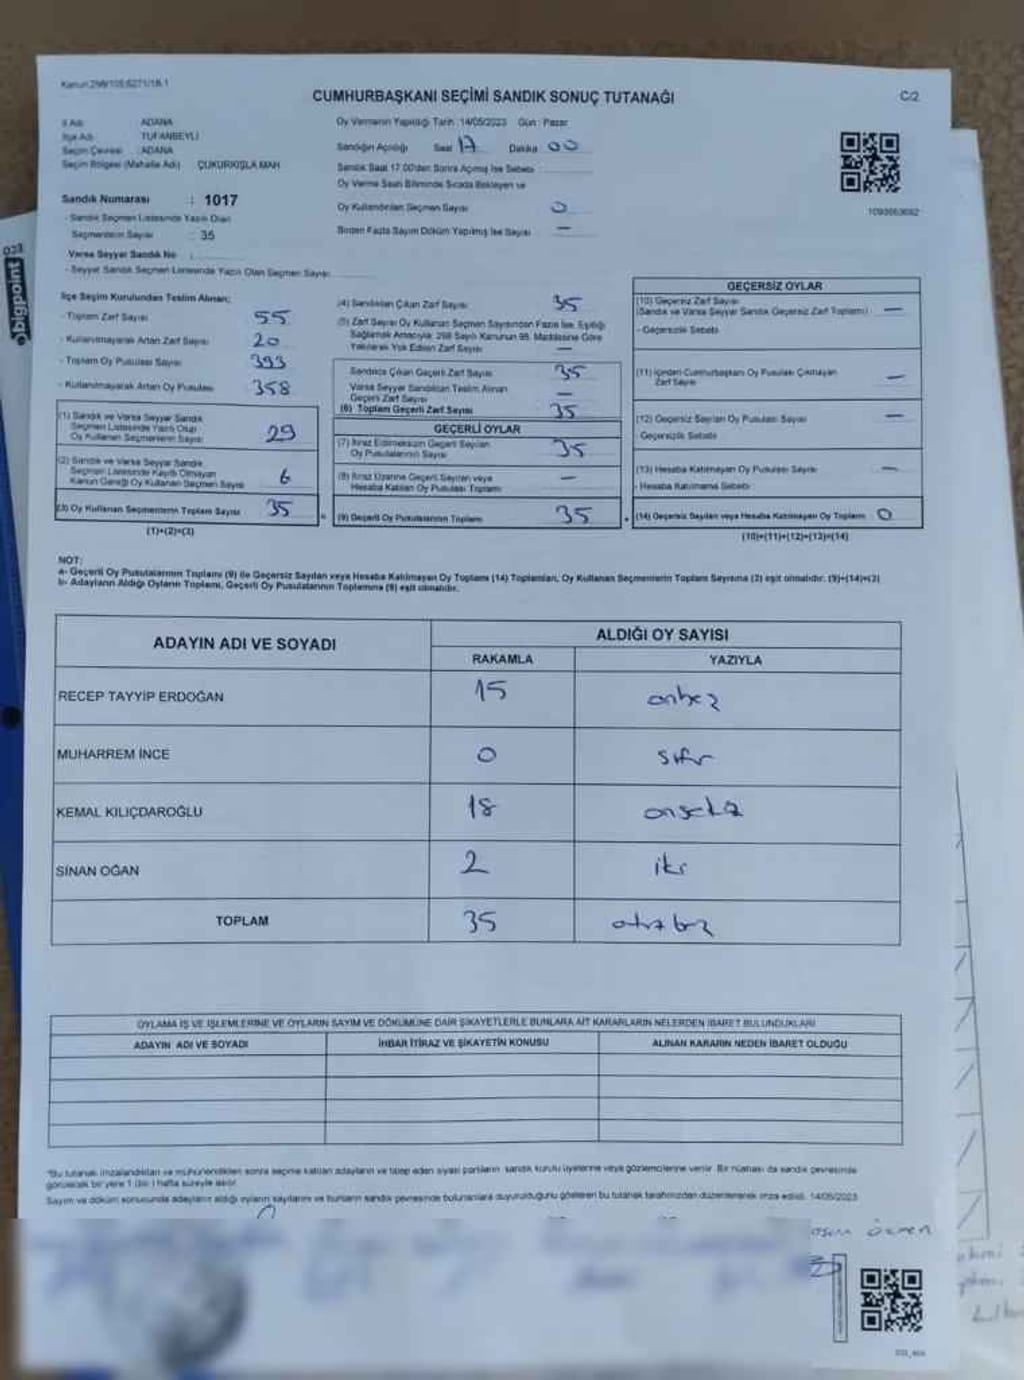 Kanun:298/105;6271/18-1
CUMHURBAŞKANI SEÇİMİ SANDIK SONUÇ TUTANAĞI
C/2
İl Adı : ADANA
İlçe Adı : TUFANBEYLİ
Seçim Çevresi : ADANA
Seçim Bölgesi (Mahalle Adı) : ÇUKURKIŞLA MAH
Sandık Numarası : 1017
- Sandık Seçmen Listesinde Yazılı Olan
Seçmenlerin Sayısı : 35
Varsa Seyyar Sandık No :
- Seyyar Sandık Seçmen Listesinde Yazılı Olan Seçmen Sayısı:
Oy Vermenin Yapıldığı Tarih :14/05/2023 Gün : Pazar
Sandığın Açıldığı Saat 17 Dakika 00
Sandık Saat 17.00'den Sonra Açılmış İse Sebebi :
Oy Verme Saati Bitiminde Sırada Bekleyen ve
Oy Kullandırılan Seçmen Sayısı 0
Birden Fazla Sayım Döküm Yapılmış İse Sayısı —
1093653692
İlçe Seçim Kurulundan Teslim Alınan;
- Toplam Zarf Sayısı 55
- Kullanılmayarak Artan Zarf Sayısı 20
- Toplam Oy Pusulası Sayısı 393
- Kullanılmayarak Artan Oy Pusulası 358
(1) Sandık ve Varsa Seyyar Sandık
Seçmen Listesinde Yazılı Olup
Oy Kullanan Seçmenlerin Sayısı 29
(2) Sandık ve Varsa Seyyar Sandık
Seçmen Listesinde Kayıtlı Olmayan
Kanun Gereği Oy Kullanan Seçmen Sayısı 6
(3) Oy Kullanan Seçmenlerin Toplam Sayısı 35
(1)+(2)=(3)
(4) Sandıktan Çıkan Zarf Sayısı 35
(5) Zarf Sayısı Oy Kullanan Seçmen Sayısından Fazla İse, Eşitliği
Sağlamak Amacıyla; 298 Sayılı Kanunun 98. Maddesine Göre
Yakılarak Yok Edilen Zarf Sayısı —
Sandıkta Çıkan Geçerli Zarf Sayısı 35
Varsa Seyyar Sandıktan Teslim Alınan
Geçerli Zarf Sayısı —
(6) Toplam Geçerli Zarf Sayısı 35
GEÇERLİ OYLAR
(7) İtiraz Edilmeksizin Geçerli Sayılan
Oy Pusulalarının Sayısı 35
(8) İtiraz Üzerine Geçerli Sayılan veya
Hesaba Katılan Oy Pusulası Toplamı —
= (9) Geçerli Oy Pusulalarının Toplamı 35
GEÇERSİZ OYLAR
(10) Geçersiz Zarf Sayısı
(Sandık ve Varsa Seyyar Sandık Geçersiz Zarf Toplamı) —
- Geçersizlik Sebebi
(11) İçinden Cumhurbaşkanı Oy Pusulası Çıkmayan
Zarf Sayısı —
(12) Geçersiz Sayılan Oy Pusulası Sayısı —
Geçersizlik Sebebi
(13) Hesaba Katılmayan Oy Pusulası Sayısı —
- Hesaba Katılmama Sebebi
+ (14) Geçersiz Sayılan veya Hesaba Katılmayan Oy Toplamı 0
(10)+(11)+(12)+(13)=(14)
NOT:
a- Geçerli Oy Pusulalarının Toplamı (9) ile Geçersiz Sayılan veya Hesaba Katılmayan Oy Toplamı (14) Toplamları, Oy Kullanan Seçmenlerin Toplam Sayısına (3) eşit olmalıdır. (9)+(14)=(3)
b- Adayların Aldığı Oyların Toplamı, Geçerli Oy Pusulalarının Toplamına (9) eşit olmalıdır.
ADAYIN ADI VE SOYADI
ALDIĞI OY SAYISI
RAKAMLA YAZIYLA
RECEP TAYYİP ERDOĞAN 15 onbeş
MUHARREM İNCE 0 sıfır
KEMAL KILIÇDAROĞLU 18 onsekiz
SİNAN OĞAN 2 iki
TOPLAM 35 otuzbeş
OYLAMA İŞ VE İŞLEMLERİNE VE OYLARIN SAYIM VE DÖKÜMÜNE DAİR ŞİKAYETLERLE BUNLARA AİT KARARLARIN NELERDEN İBARET BULUNDUKLARI
ADAYIN ADI VE SOYADI İHBAR İTİRAZ VE ŞİKAYETİN KONUSU ALINAN KARARIN NEDEN İBARET OLDUĞU
*Bu tutanak imzalandıktan ve mühürlendikten sonra seçime katılan adayların ve talep eden siyasi partilerin sandık kurulu üyelerine veya gözlemcilerine verilir. Bir nüshası da sandık çevresinde
görülecek bir yere 1 (bir ) hafta süreyle asılır.
Sayım ve döküm sonucunda adayların aldığı oyların sayılarını ve bunların sandık çevresinde bulunanlara duyurulduğunu gösteren bu tutanak tarafımızdan düzenlenerek imza edildi. 14/05/2023
bigpoint
023